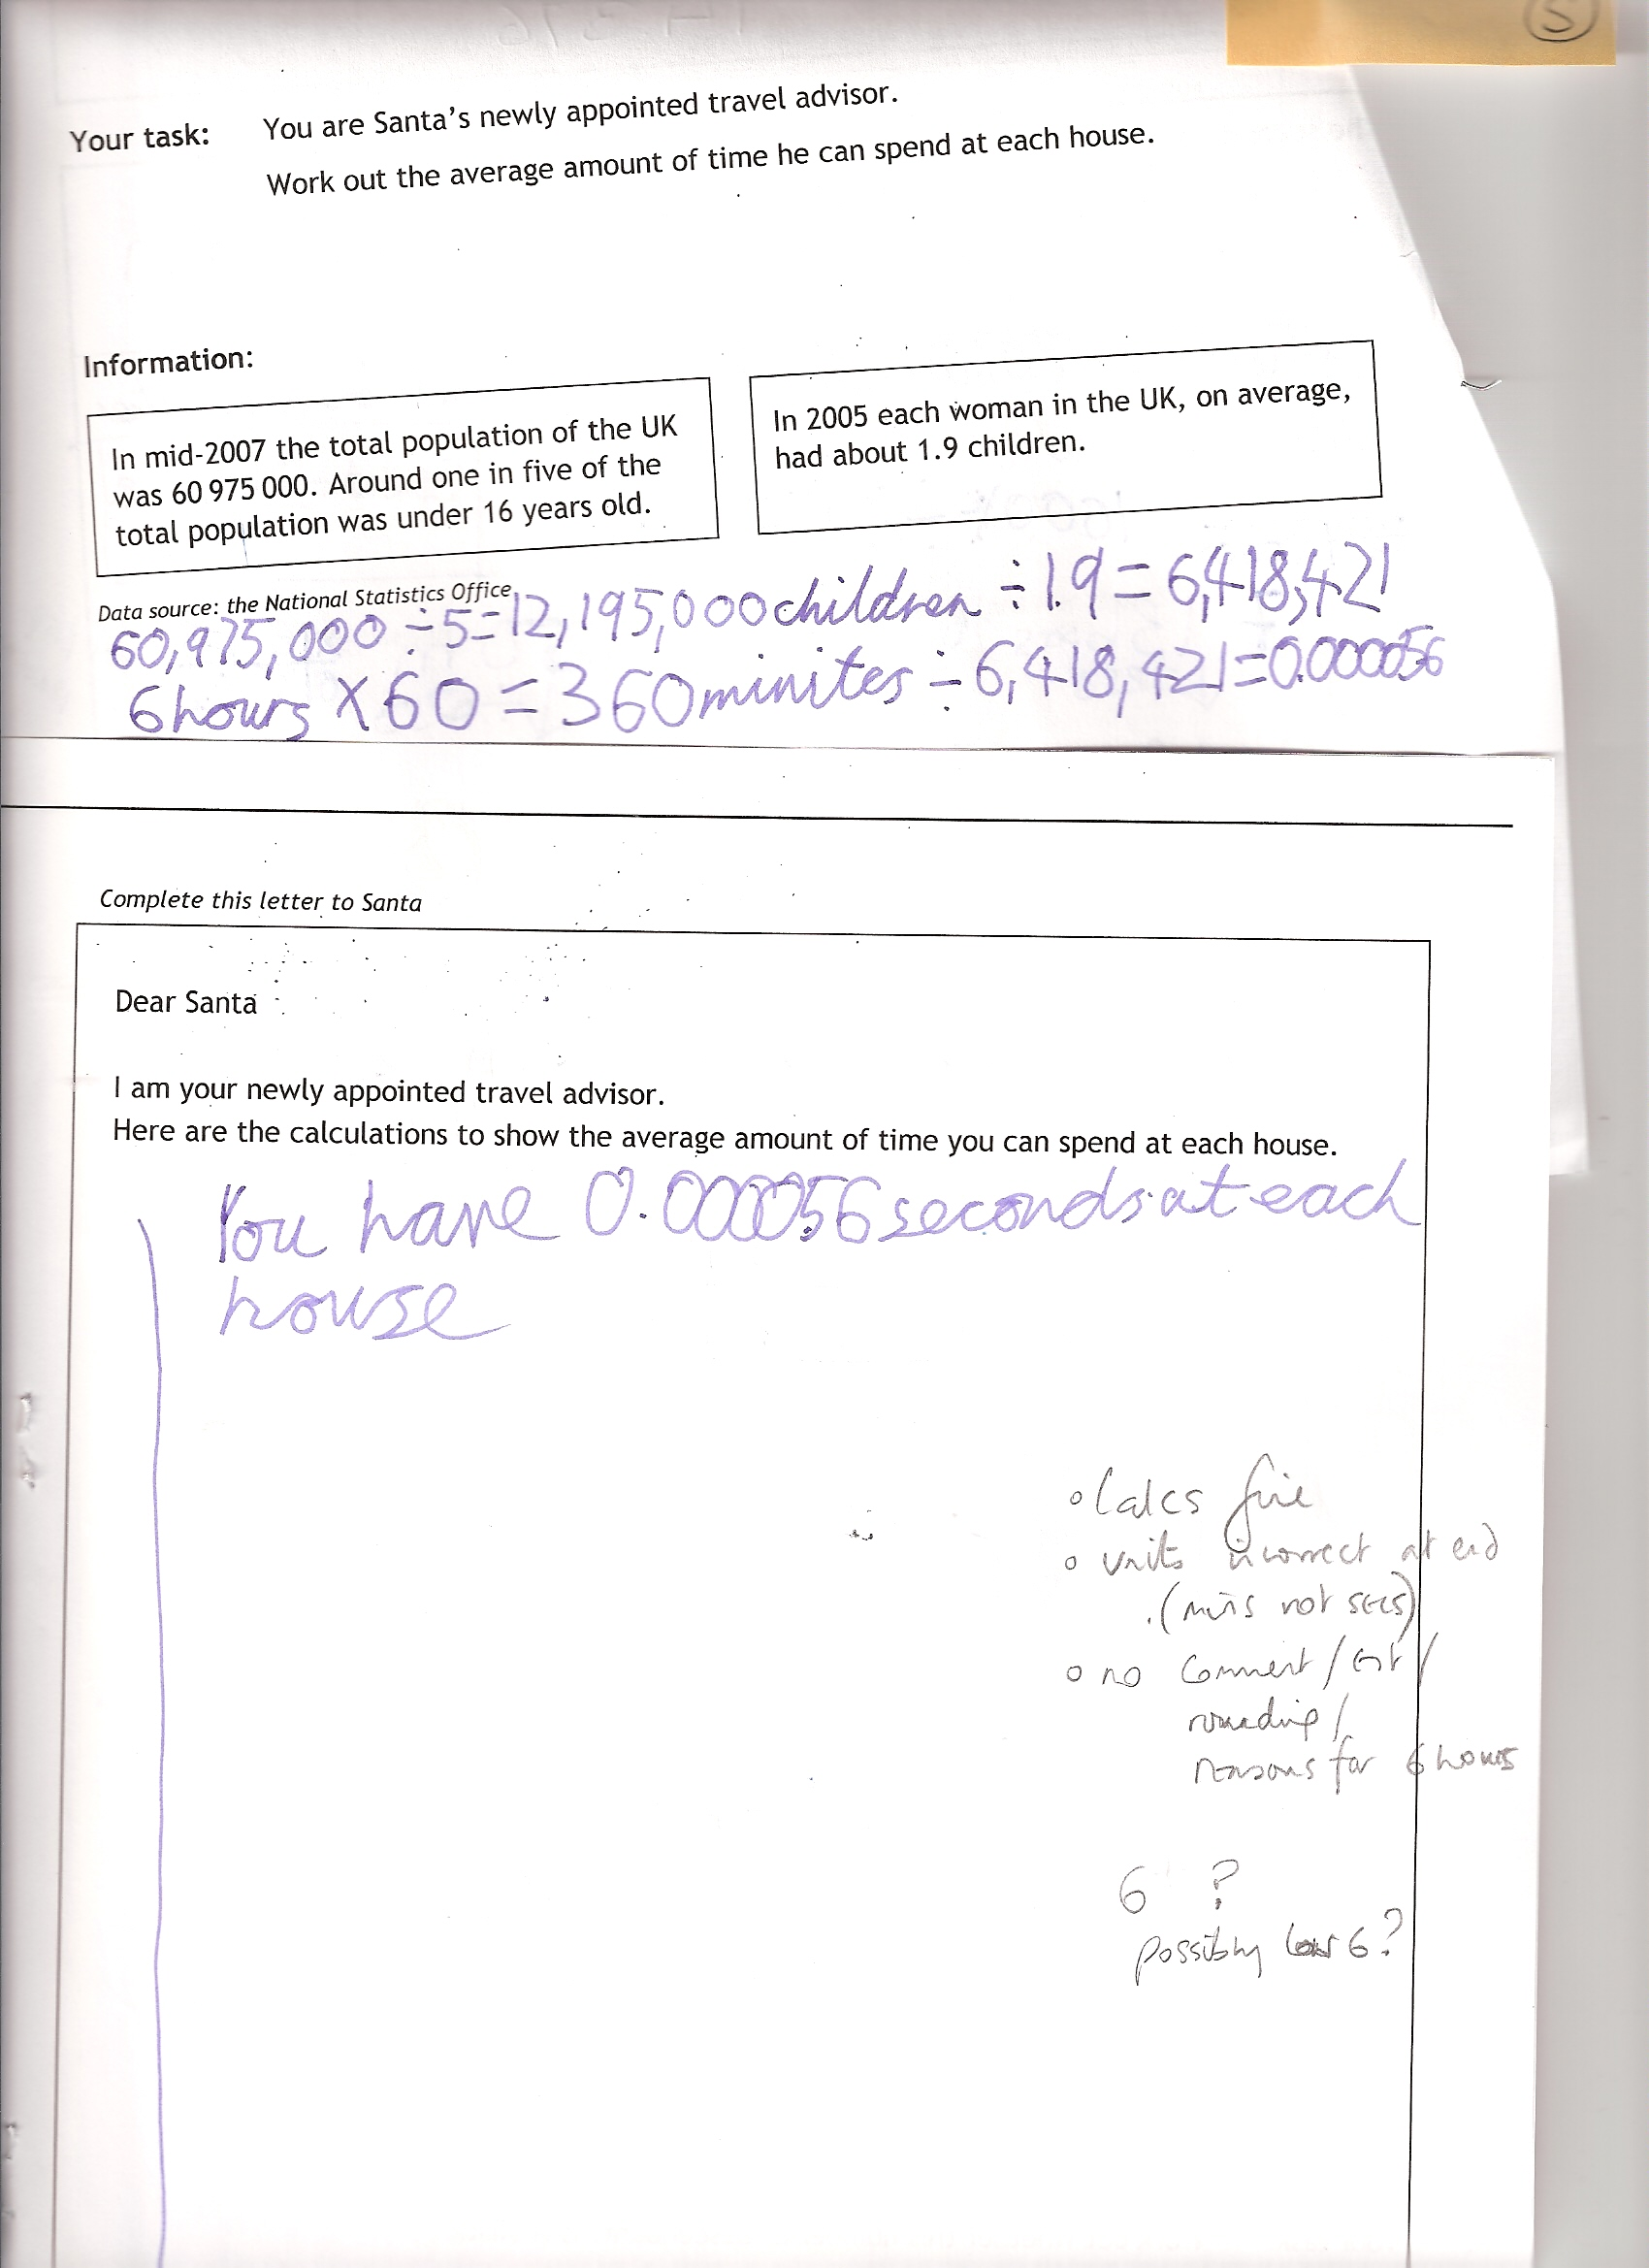 S
Your task: You are Santa's newly appointed travel advisor.
Work out the average amount of time he can spend at each house.
Information:
In mid-2007 the total population of the UK
was 60 975 000. Around one in five of the
total population was under 16 years old.
In 2005 each woman in the UK, on average,
had about 1.9 children.
Data source: the National Statistics Office
60,975,000 ÷ 5 = 12,195,000 children ÷ 1.9 = 6,418,421
6 hours × 60 = 360 minites ÷ 6,418,421 = 0.000056
Complete this letter to Santa
Dear Santa
I am your newly appointed travel advisor.
Here are the calculations to show the average amount of time you can spend at each house.
You have 0.000056 seconds at each
house
Calcs fine
units incorrect at end
(mins not secs)
no comment/
rounding/
reasons for 6 hours
6 ?
possibly 6?